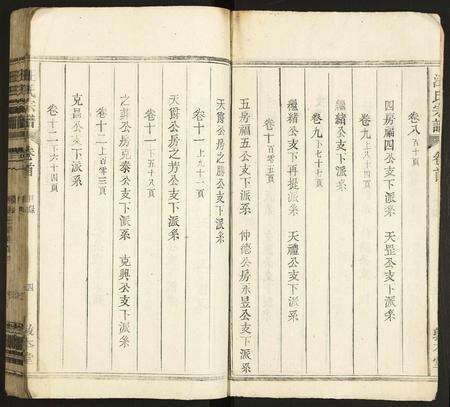 卷八 五十頁
四房福四公支下派系 天星公支下派系
卷九 上八十四頁
繼緒公支下派系
卷九 下七十七頁
繼緒公支下再挺派系 天禮公支下派系
卷十 百零五頁
五房福五公支下派系 仲德公房永昱公支下派系
天爵公房之勝公支下派系
卷十一 上九十一頁
天爵公房之芳公支下派系
卷十一 下五十八頁
之華公房克泰公支下派系 克興公支下派系
卷十二 上百零三頁
克昌公支下派系
卷十二 下六十四頁
卷首
四